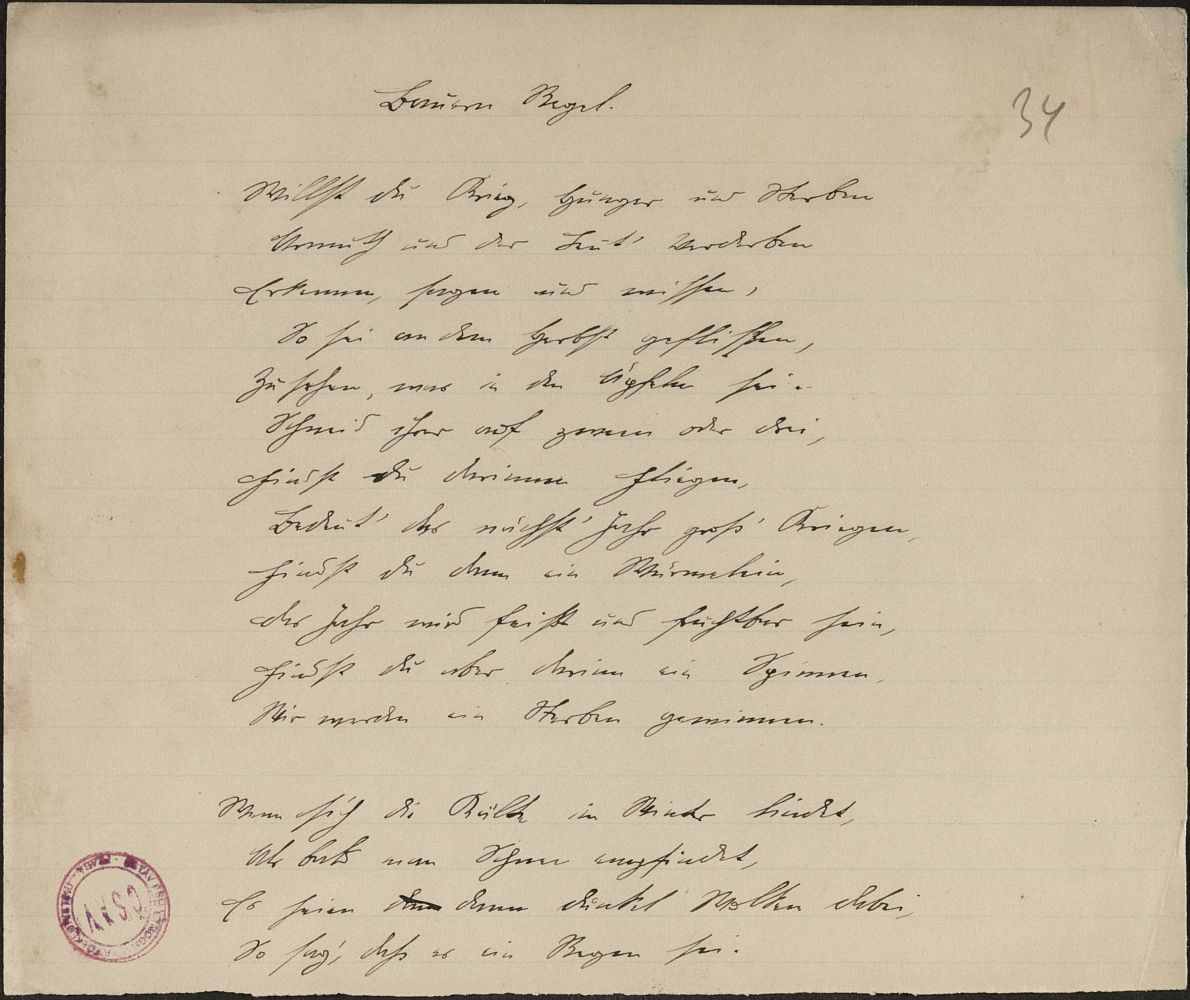 Bauern Regel.
34
Willst du Krieg, Hunger und Sterben
Armuth und der Leut' Verderben
Erkennen, sorgen und wissen,
So sei an dem Herbst geflissen,
Zu sehen, was in den Äpfeln sei.
Schneid ihrer auf zween oder drei,
Findst du darinnen Fliegen,
Bedeut' das nächst' Jahr groß' Kriegen,
Findst du dann ein Würmelein,
das Jahr wird feist und fruchtbar sein,
Findst du aber darinn ein Spinnen,
Wir werden ein Sterben gewinnen.
Wenn sich die Kälte im Winter lindet,
Als bald man Schnee empfindet,
Es seien denn dunkel Wolken dabei,
So sag', daß es ein Regen sei.